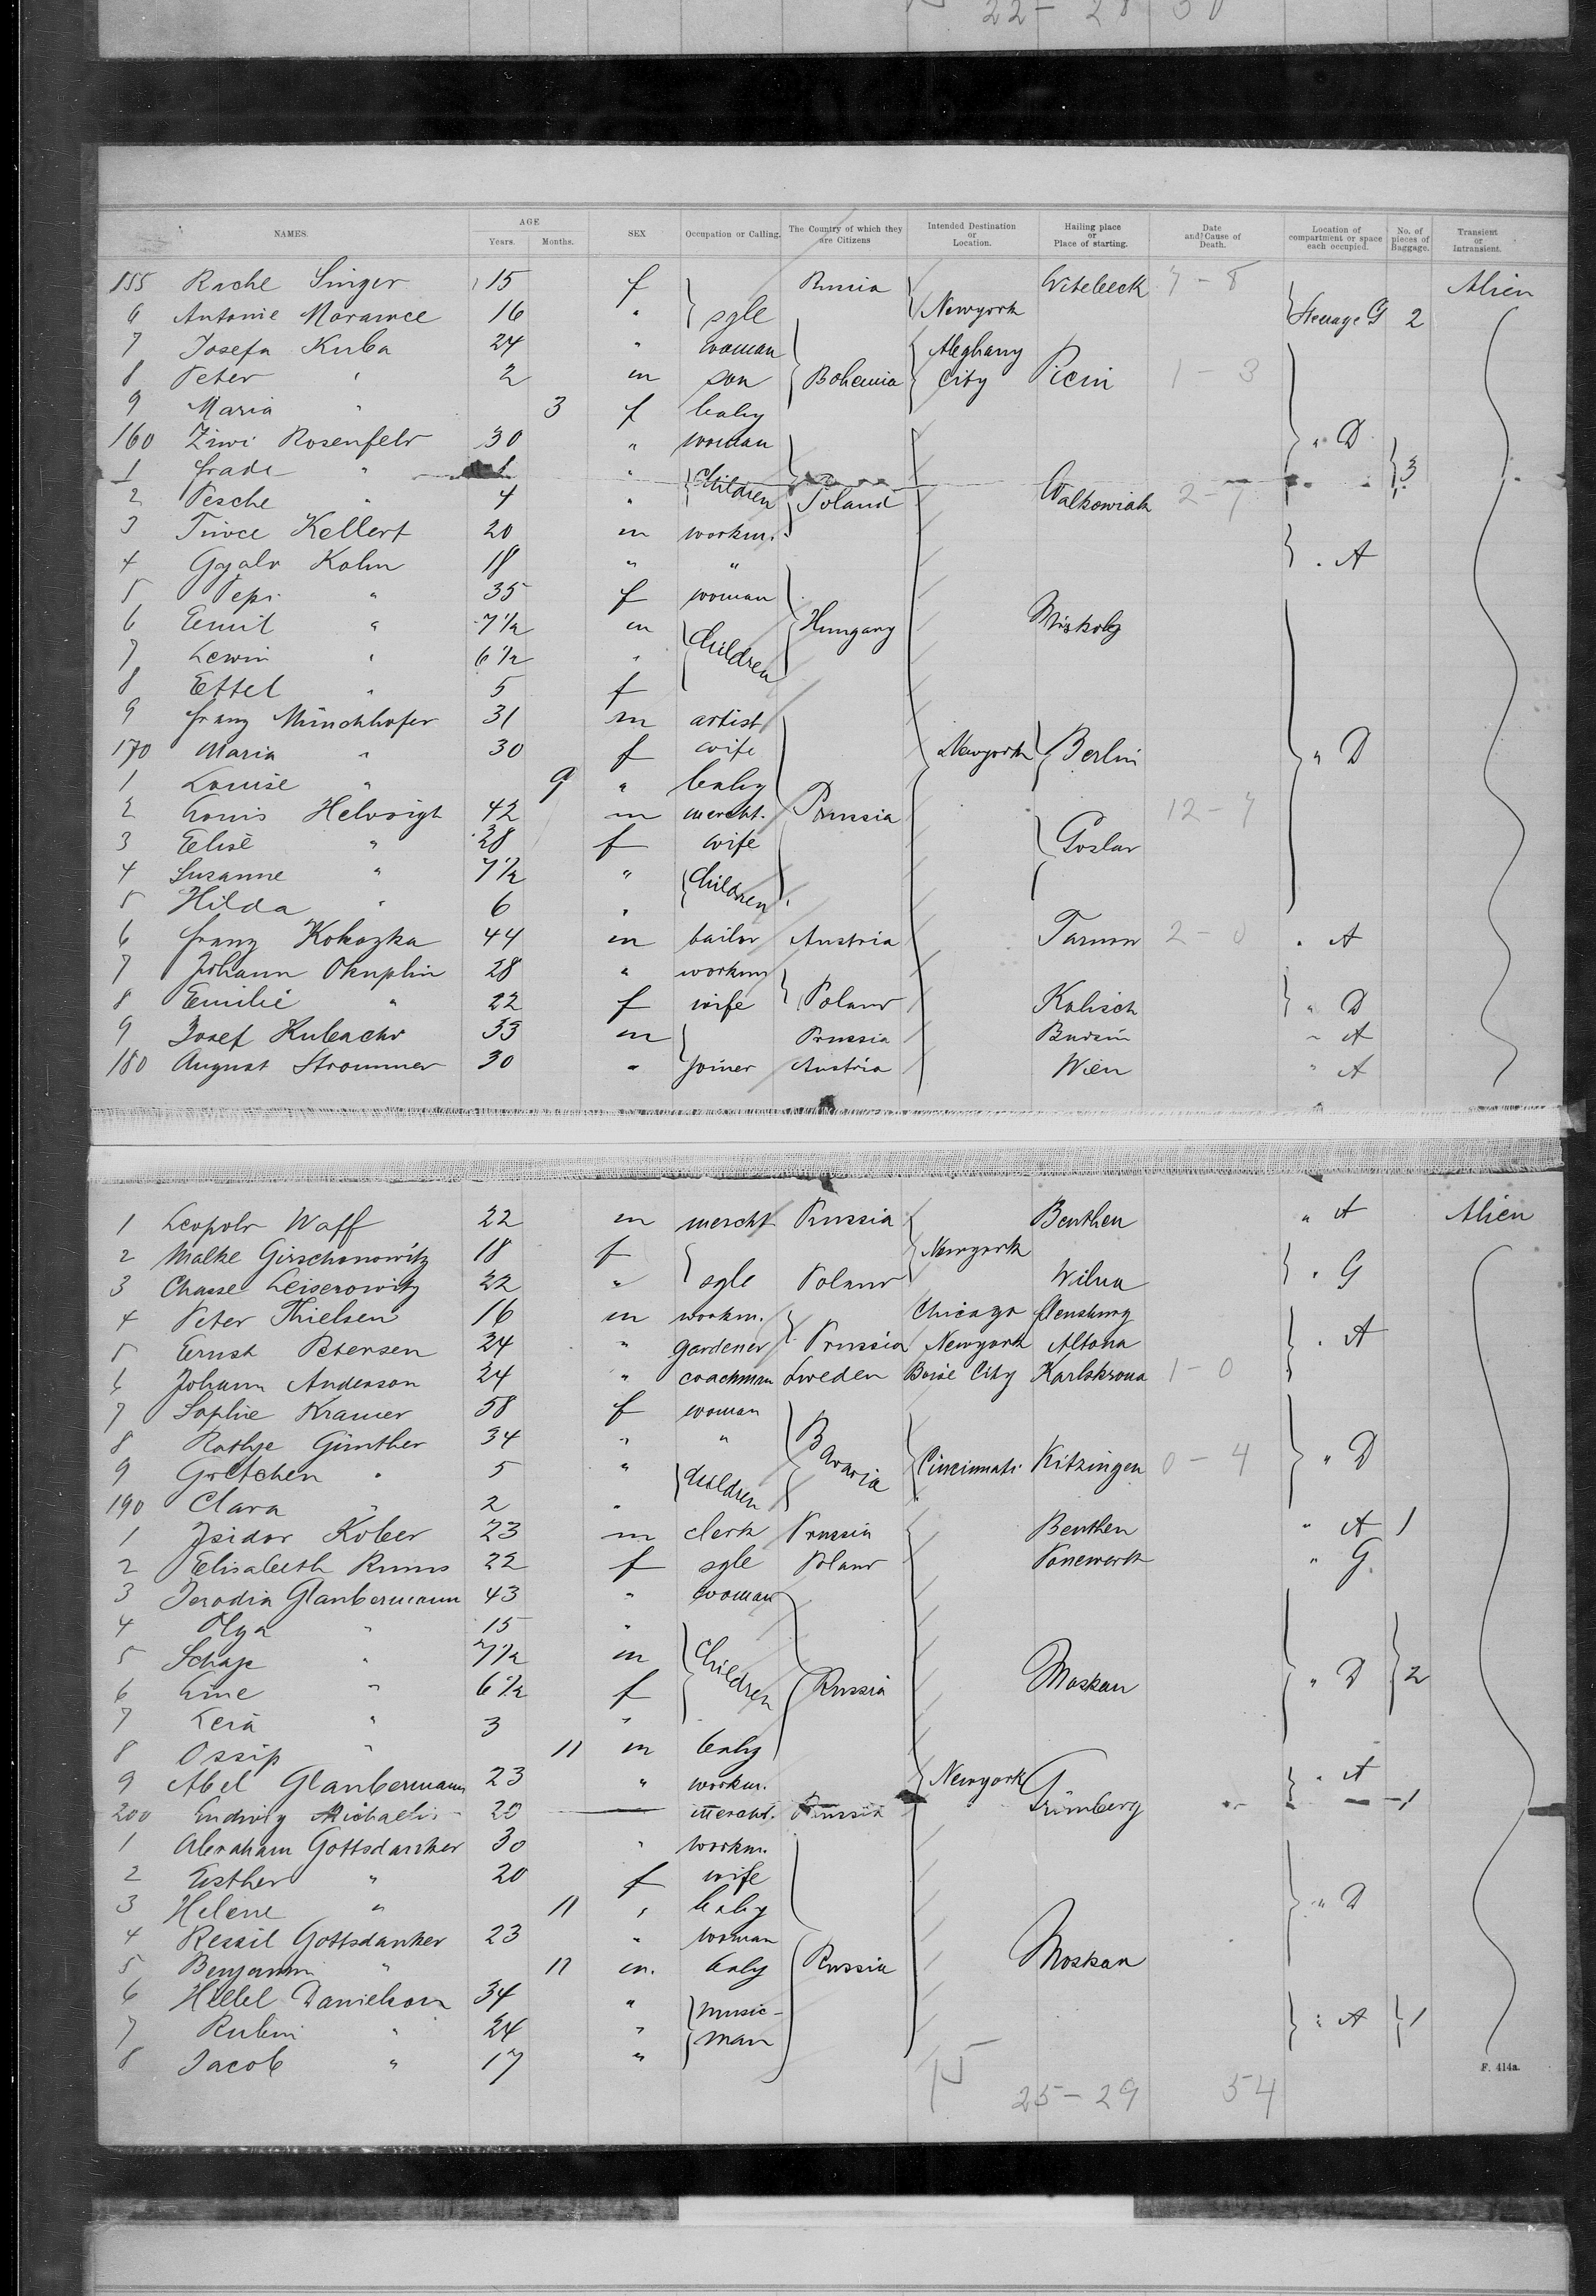 22 - 28 50
NAMES. AGE Years. Months. SEX Occupation or Calling. The Country of which they are Citizens Intended Destination or Location. Hailing place or Place of starting. Date and Cause of Death. Location of compartment or space each occupied. No. of pieces of Baggage. Transient or Intransient.
155 Rache Singer 15 f Russia Witebeck 7 - 8 Alien
6 Antonie Morawce 16 " sgle Newyork Steerage G 2
7 Josefa Kuba 24 " woman Aleghany
8 Peter " 2 m son Bohemia City Picin 1 - 3
9 Maria " 3 f baby
160 Ziwi Rosenfeld 30 " woman " D
1 frade " " Children 3
2 Pesche " 4 " Poland Walkowiak 2 - 7
3 Kellert 20 m workm.
4 Kohn 18 " " " A
5 Pepi " 35 f woman
6 Emil " 7½ m Children Hungary Miskolz
7 Lewin " 6½ "
8 Ettel " 5 f
9 franz Münchhofer 31 m artist
170 Maria " 30 f wife Newyork Berlin " D
1 Louise " 9 " baby
2 Louis Helwigh 42 m mercht. Prussia 12 - 7
3 Elise " 28 f wife Goslar
4 Susanne " 7½ " Children
5 Hilda " 6 "
6 franz Kokozka 44 m tailor Austria Tarnow 2 - 0 " A
7 Johann Okuplin 28 " workm
8 Emilie " 22 f wife Poland Kalisch " D
9 Josef Kubachr 33 m Prussia " A
180 August Strommer 30 " joiner Austria Wien " A
1 Leopold Waff 22 m mercht Prussia Beuthen " A Alien
2 Malke Girschonowitz 18 f Newyork
3 Chasse Leiserowitz 22 " sgle Poland Wilna " G
4 Peter Thielsen 16 m workm. Chicago flensburg
5 Ernst Petersen 24 " gardener Prussia Newyork Altona " A
6 Johann Anderson 24 " coachman Sweden Boise City Karlskrona 1 - 0
7 Sophie Kramer 58 f woman
8 Rathje Günther 34 " " Bavaria
9 Gretchen " 5 " Children Cincinnati Kitzingen 0 - 4 " D
190 Clara " 2 "
1 Isidor Kober 23 m clerk Prussia Beuthen " A 1
2 Elisabeth 22 f sgle Poland Ponewerk " G.
3 Glaubermann 43 " woman
4 Olga " 15 "
5 Schaje " 7½ m Children
6 Line " 6½ f Russia Moskau " D 2
7 Lera " 3 "
8 Ossip " 11 m baby
9 Abel Glaubermann 23 " workm. Newyork " A
200 Ludwig Michaelis 20 mercht. Prussia Grünberg 1
1 Abraham Gottsdanker 30 " workm.
2 Esther " 20 f wife
3 Helene " 11 " baby " D
4 Ressil Gottsdanker 23 " woman
5 Benjamin " 11 m. baby Russia Moskau
6 Hellel Danielson 34 " music-
7 Rubin " 24 " man " A 1
8 Jacob " 17 "
F. 414a.
15 25 - 29 54